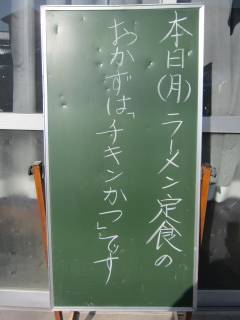 本日(月)ラーメン定食の
おかずは「チキンかつ」です